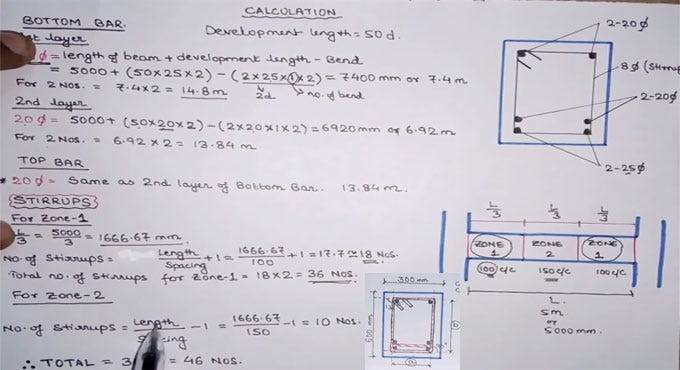 CALCULATION
BOTTOM BAR.
Development length = 50d.
1st layer
ϕ = length of beam + development length - Bend
= 5000 + (50×25×2) - (2×25×1×2) = 7400 mm or 7.4 m
2d no. of bend
For 2 Nos. = 7.4×2 = 14.8 m
2nd layer
20ϕ = 5000 + (50×20×2) - (2×20×1×2) = 6920 mm or 6.92 m
For 2 Nos. = 6.92 × 2 = 13.84 m
TOP BAR
* 20ϕ = Same as 2nd layer of Bottom Bar. 13.84 m.
STIRRUPS
For Zone-1
L/3 = 5000/3 = 1666.67 mm.
No. of Stirrups = Length/Spacing + 1 = 1666.67/100 + 1 = 17.7 ≅ 18 Nos.
Total no. of stirrups for zone-1 = 18×2 = 36 Nos.
For Zone-2
No. of Stirrups = Length/Spacing - 1 = 1666.67/150 - 1 = 10 Nos.
∴ TOTAL = 3 = 46 NOS.
2-20ϕ
8ϕ (Stirrup
2-20ϕ
2-25ϕ
L/3 L/3 L/3
ZONE 1 ZONE 2 ZONE 1
100 c/c 150 c/c 100 c/c
L.
5m
or
5000 mm.
300 mm
600 mm
b
a